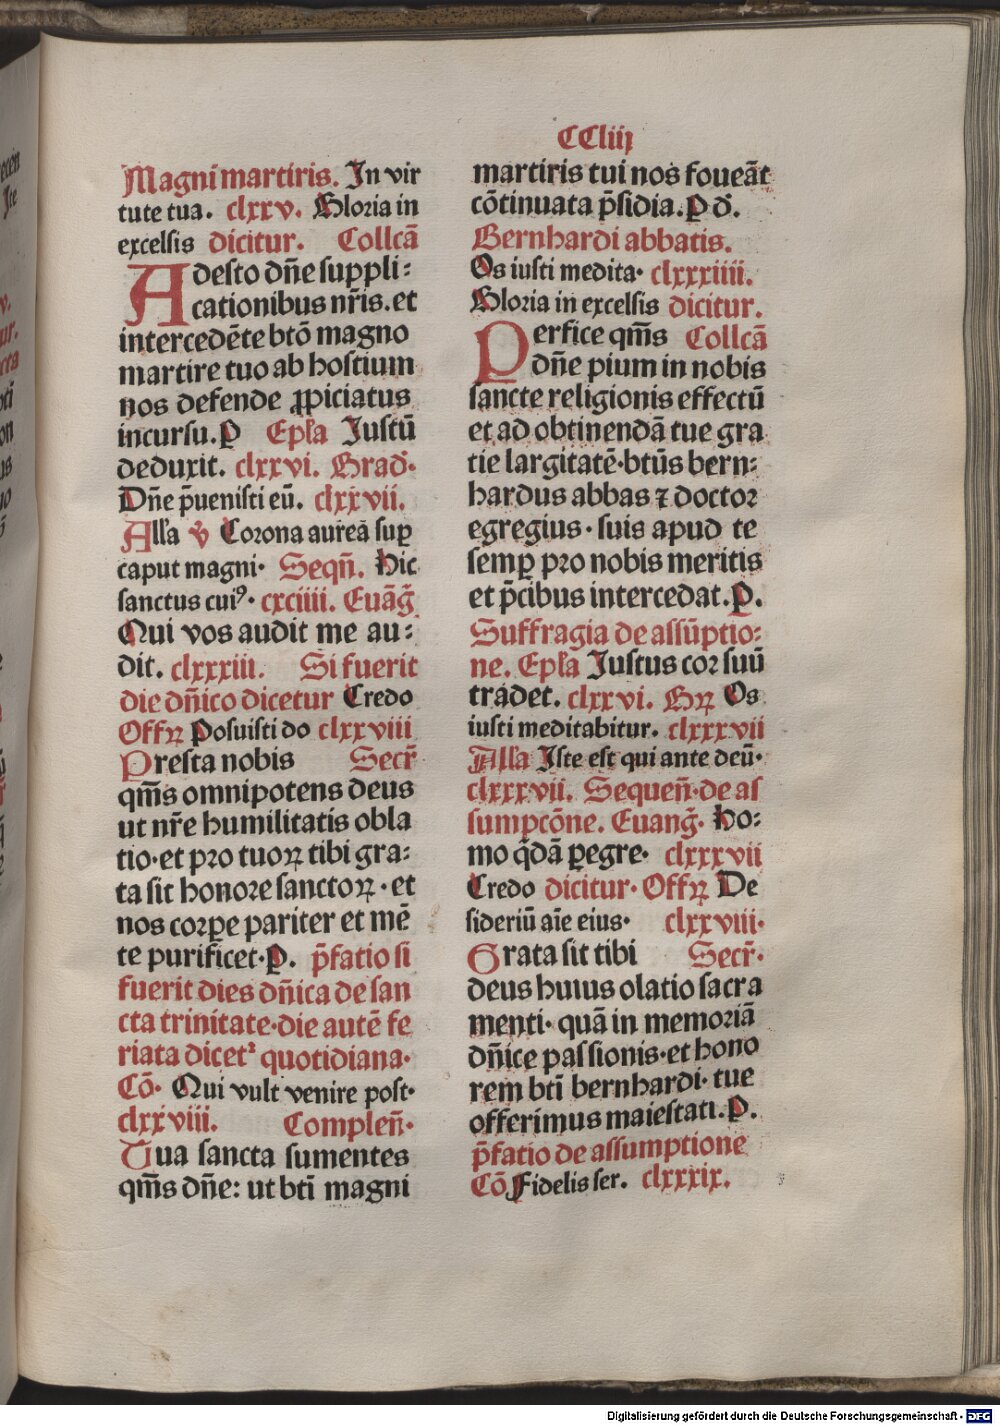 CCliiij
Magni martiris. In vir
tute tua. clxxv. Gloria in
excelsis dicitur. Collcā
Adesto dñe suppli:
cationibus nr̄is. et
intercedēte btō magno
martire tuo ab hostium
nos defende ꝓpiciatus
incursu. P Ep̄la Justū
deduxit. clxxvi. Grad̄.
Dñe p̄uenisti eū. clxxvii.
Alla ℣ Corona aurea suꝑ
caput magni. Seqn̄. Hic
sanctus cuiꝰ. cxciiii. Euāg̃
Qui vos audit me au:
dit. clxxxiii. Si fuerit
die dñico dicetur Credo
Offꝝ Posuisti do clxxviii
Presta nobis Secr̄
qm̄s omnipotens deus
ut nr̄e humilitatis obla
tio. et pro tuoꝝ tibi gra:
ta sit honore sanctoꝝ. et
nos corꝑe pariter et mē
te purificet. P. p̄fatio si
fuerit dies dn̄ica de san
cta trinitate. die autē fe
riata dicet᷑ quotidiana.
Cō. Qui vult venire post.
clxxviii. Complen̄.
Tua sancta sumentes
qm̄s dñe: ut bti̅ magni
martiris tui nos foueāt
cōtinuata p̄sidia. P d̄.
Bernhardi abbatis.
Os iusti medita. clxxxiiii.
Gloria in excelsis dicitur.
Perfice qm̄s Collcā
dñe pium in nobis
sancte religionis effectū
et ad obtinendā tue gra
tie largitatē. btūs bern:
hardus abbas ⁊ doctor
egregius. suis apud te
semꝑ pro nobis meritis
et p̄cibus intercedat. P.
Suffragia de assūptio:
ne. Ep̄la Justus cor suū
tradet. clxxvi. Gꝝ Os
iusti meditabitur. clxxxvii
Alla Iste est qui ante deū.
clxxxvii. Sequen̄. de as
sumpcōne. Euang̃. Ho:
mo q̄dā ꝑegre. clxxxvii
Credo dicitur. Offꝝ De
sideriū aīe eius. clxxviii.
Grata sit tibi Secr̄.
deus huius olatio sacra
menti. quā in memoriā
dñice passionis. et hono
rem bti̅ bernhardi. tue
offerimus maiestati. P.
p̄fatio de assumptione
Cō Fidelis ser. clxxxix.
Digitalisierung gefördert durch die Deutsche Forschungsgemeinschaft - DFG